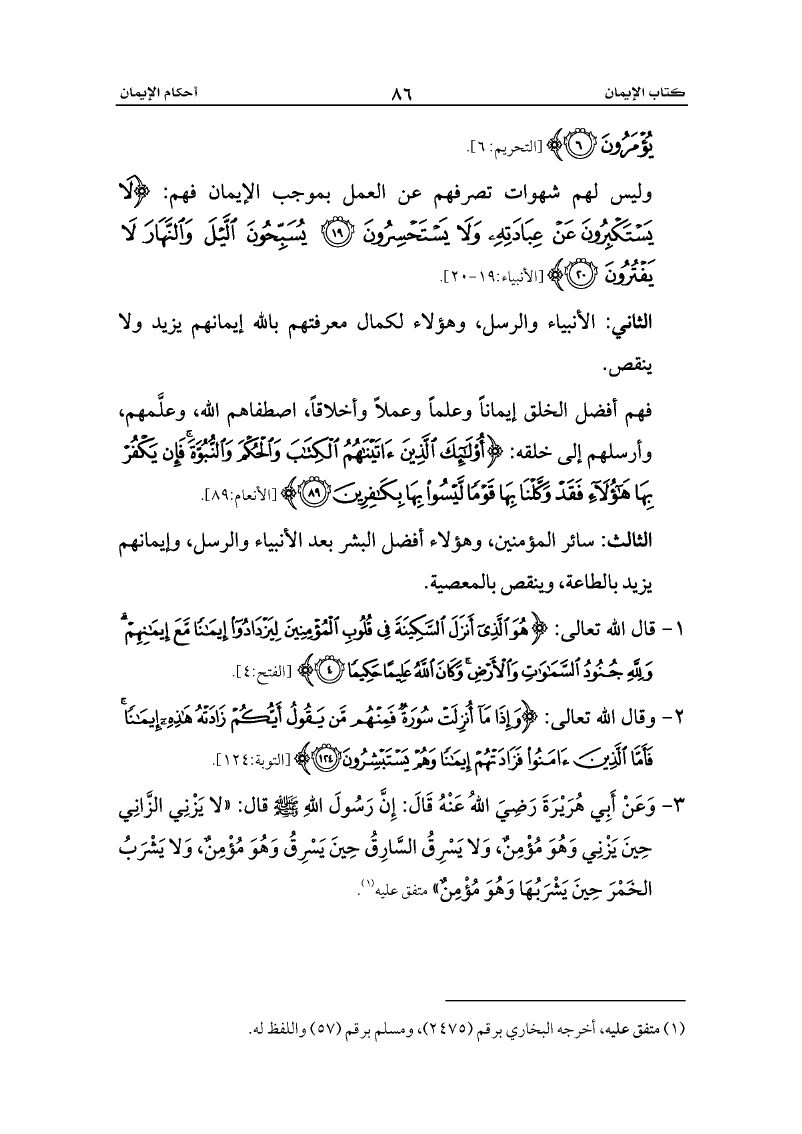 كتاب الإيمان ٨٦ أحكام الإيمان
يُؤْمَرُونَ ۝٦﴾ [التحريم: ٦].
وليس لهم شهوات تصرفهم عن العمل بموجب الإيمان فهم: ﴿لَا
يَسْتَكْبِرُونَ عَنْ عِبَادَتِهِۦ وَلَا يَسْتَحْسِرُونَ ۝١٩ يُسَبِّحُونَ ٱلَّيْلَ وَٱلنَّهَارَ لَا
يَفْتُرُونَ ۝٢٠﴾ [الأنبياء:١٩-٢٠].
الثاني: الأنبياء والرسل، وهؤلاء لكمال معرفتهم بالله إيمانهم يزيد ولا
ينقص.
فهم أفضل الخلق إيماناً وعلماً وعملاً وأخلاقاً، اصطفاهم الله، وعلَّمهم،
وأرسلهم إلى خلقه: ﴿أُوْلَٰٓئِكَ ٱلَّذِينَ ءَاتَيْنَٰهُمُ ٱلْكِتَٰبَ وَٱلْحُكْمَ وَٱلنُّبُوَّةَۚ فَإِن يَكْفُرْ
بِهَا هَٰٓؤُلَآءِ فَقَدْ وَكَّلْنَا بِهَا قَوْمًا لَّيْسُوا۟ بِهَا بِكَٰفِرِينَ ۝٨٩﴾ [الأنعام:٨٩].
الثالث: سائر المؤمنين، وهؤلاء أفضل البشر بعد الأنبياء والرسل، وإيمانهم
يزيد بالطاعة، وينقص بالمعصية.
١- قال الله تعالى: ﴿هُوَ ٱلَّذِىٓ أَنزَلَ ٱلسَّكِينَةَ فِى قُلُوبِ ٱلْمُؤْمِنِينَ لِيَزْدَادُوٓا۟ إِيمَٰنًا مَّعَ إِيمَٰنِهِمْۗ
وَلِلَّهِ جُنُودُ ٱلسَّمَٰوَٰتِ وَٱلْأَرْضِۚ وَكَانَ ٱللَّهُ عَلِيمًا حَكِيمًا ۝٤﴾ [الفتح:٤].
٢- وقال الله تعالى: ﴿وَإِذَا مَآ أُنزِلَتْ سُورَةٌ فَمِنْهُم مَّن يَقُولُ أَيُّكُمْ زَادَتْهُ هَٰذِهِۦٓ إِيمَٰنًاۚ
فَأَمَّا ٱلَّذِينَ ءَامَنُوا۟ فَزَادَتْهُمْ إِيمَٰنًا وَهُمْ يَسْتَبْشِرُونَ ۝١٢٤﴾ [التوبة:١٢٤].
٣- وَعَنْ أَبِي هُرَيْرَةَ رَضِيَ اللهُ عَنْهُ قَالَ: إِنَّ رَسُولَ اللهِ ﷺ قال: «لا يَزْنِي الزَّانِي
حِينَ يَزْنِي وَهُوَ مُؤْمِنٌ، وَلا يَسْرِقُ السَّارِقُ حِينَ يَسْرِقُ وَهُوَ مُؤْمِنٌ، وَلا يَشْرَبُ
الخَمْرَ حِينَ يَشْرَبُهَا وَهُوَ مُؤْمِنٌ» متفق عليه(١).
(١) متفق عليه، أخرجه البخاري برقم (٢٤٧٥)، ومسلم برقم (٥٧) واللفظ له.